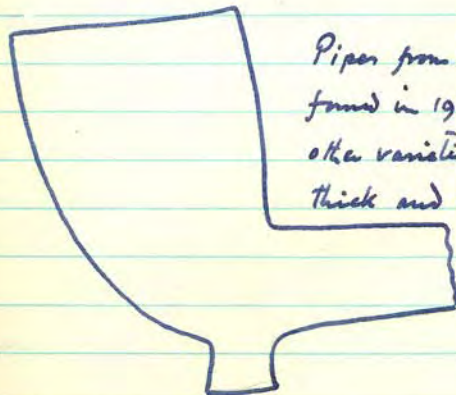 Pipes from
found in 19
other varieti
thick and